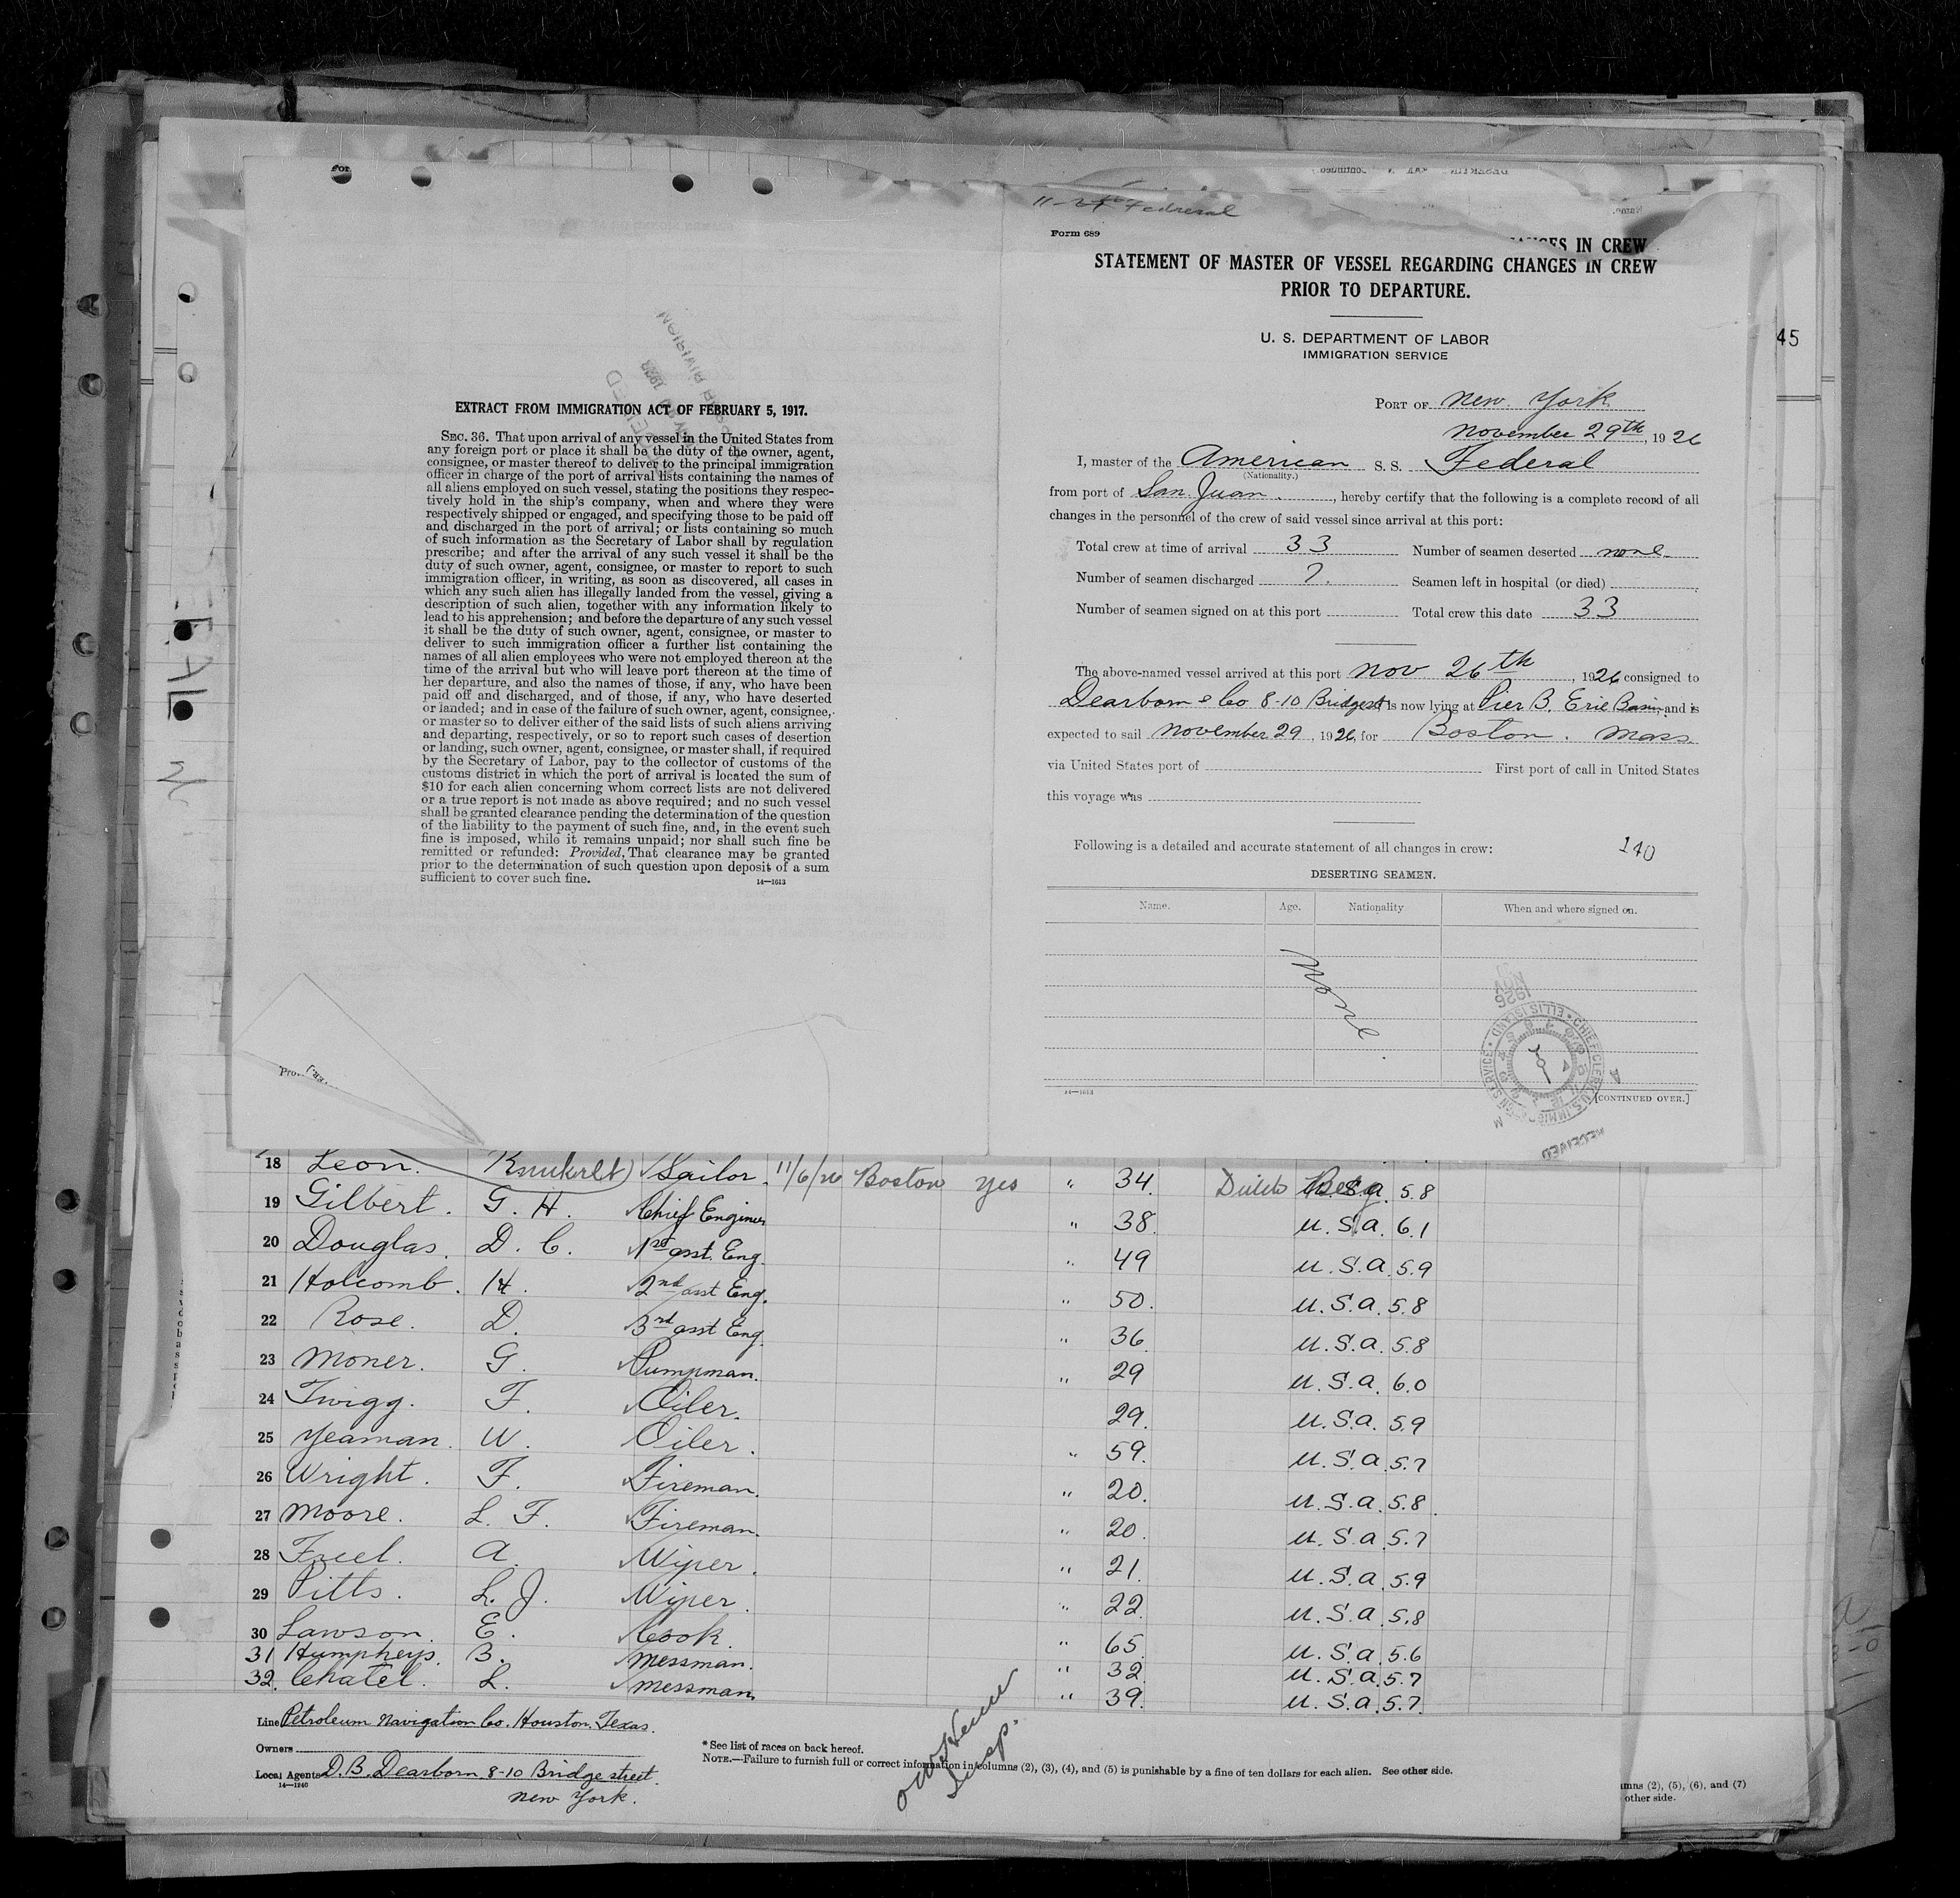 for
11-26 Federal
Form 689
STATEMENT OF MASTER OF VESSEL REGARDING CHANGES IN CREW
PRIOR TO DEPARTURE.
U. S. DEPARTMENT OF LABOR
IMMIGRATION SERVICE
45
PORT OF New York
November 29th, 1926
I, master of the American S. S. Federal
(Nationality.)
from port of San Juan., hereby certify that the following is a complete record of all
changes in the personnel of the crew of said vessel since arrival at this port:
Total crew at time of arrival 33 Number of seamen deserted none
Number of seamen discharged 7. Seamen left in hospital (or died)
Number of seamen signed on at this port Total crew this date 33
The above-named vessel arrived at this port Nov 26th, 1926 consigned to
Dearborn & Co 8-10 Bridge st is now lying at Pier B. Erie Basin and is
expected to sail November 29, 1926, for Boston. Mass.
via United States port of First port of call in United States
this voyage was
Following is a detailed and accurate statement of all changes in crew: 140
DESERTING SEAMEN.
Name. Age. Nationality When and where signed on.
None.
14—1613 [CONTINUED OVER.]
EXTRACT FROM IMMIGRATION ACT OF FEBRUARY 5, 1917.
SEC. 36. That upon arrival of any vessel in the United States from
any foreign port or place it shall be the duty of the owner, agent,
consignee, or master thereof to deliver to the principal immigration
officer in charge of the port of arrival lists containing the names of
all aliens employed on such vessel, stating the positions they respec-
tively hold in the ship's company, when and where they were
respectively shipped or engaged, and specifying those to be paid off
and discharged in the port of arrival; or lists containing so much
of such information as the Secretary of Labor shall by regulation
prescribe; and after the arrival of any such vessel it shall be the
duty of such owner, agent, consignee, or master to report to such
immigration officer, in writing, as soon as discovered, all cases in
which any such alien has illegally landed from the vessel, giving a
description of such alien, together with any information likely to
lead to his apprehension; and before the departure of any such vessel
it shall be the duty of such owner, agent, consignee, or master to
deliver to such immigration officer a further list containing the
names of all alien employees who were not employed thereon at the
time of the arrival but who will leave port thereon at the time of
her departure, and also the names of those, if any, who have been
paid off and discharged, and of those, if any, who have deserted
or landed; and in case of the failure of such owner, agent, consignee,
or master so to deliver either of the said lists of such aliens arriving
and departing, respectively, or so to report such cases of desertion
or landing, such owner, agent, consignee, or master shall, if required
by the Secretary of Labor, pay to the collector of customs of the
customs district in which the port of arrival is located the sum of
$10 for each alien concerning whom correct lists are not delivered
or a true report is not made as above required; and no such vessel
shall be granted clearance pending the determination of the question
of the liability to the payment of such fine, and, in the event such
fine is imposed, while it remains unpaid; nor shall such fine be
remitted or refunded: Provided, That clearance may be granted
prior to the determination of such question upon deposit of a sum
sufficient to cover such fine.
14—1613
18 Leon. Sailor. 11/6/26 Boston yes " 34. 5.8
19 Gilbert. G. H. Chief Engineer " 38. U.S.A. 6.1
20 Douglas. D. C. 1st asst. Eng. " 49 U.S.A. 5.9
21 Holcomb. H. 2nd asst Eng. " 50. U.S.A. 5.8
22 Rose. D. 3rd asst Eng. " 36 U.S.A. 5.8
23 Moner. G. Pumpman. " 29 U.S.A. 6.0
24 Twigg. F. Oiler. 29. U.S.A. 5.9
25 Yeaman. W. Oiler. " 59. U.S.A. 5.7
26 Wright. F. Fireman. " 20. U.S.A. 5.8
27 Moore. L. F. Fireman. " 20. U.S.A. 5.7
28 Freel. A. Wiper. " 21. U.S.A. 5.9
29 Pitts. L. J. Wiper. " 22. U.S.A. 5.8
30 Lawson. E. Cook. " 65. U.S.A. 5.6
31 Humpheys. B. Messman. " 32 U.S.A. 5.7
32. Chatel. L. Messman. " 39. U.S.A. 5.7.
Line Petroleum Navigation Co. Houston. Texas.
Owners
Local Agents D. B. Dearborn 8-10 Bridge street.
14—1240
New York.
* See list of races on back hereof.
NOTE.—Failure to furnish full or correct information in columns (2), (3), (4), and (5) is punishable by a fine of ten dollars for each alien. See other side.
Insp.
mns (2), (5), (6), and (7)
other side.